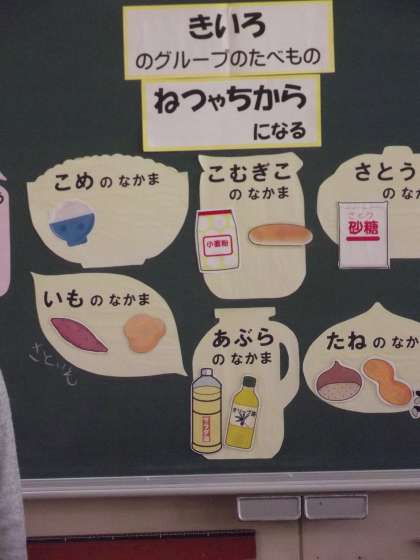 きいろ
のグループのたべもの
ねつやちから
になる
こめ の なかま
こむぎこ
の なかま
小麦粉
さとう
のなか
さとう
砂糖
いも の なかま
さといも
あぶら
の なかま
たね の なか